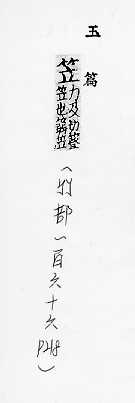 玉篇
笠力及切簦
笠也䈉笠
（竹部一百六十六
P48）